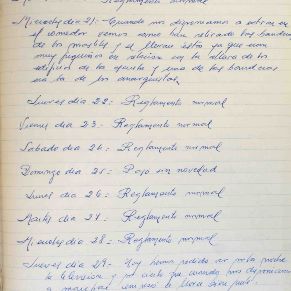 Reglamento normal
Miercoles dia 21 - Cuando nos disponemos a entrar en
el comedor vemos como han retirado las banderas
de los mastiles y se llevan esto ya que son
muy pequeños en relacion con la altura de los
edificios de la y una de las banderas
era la de los anarquistas.
Jueves dia 22 - Reglamento normal
Viernes dia 23 - Reglamento normal
Sabado dia 24 - Reglamento normal
Domingo dia 25 - Paso sin novedad
Lunes dia 26 - Reglamento normal
Martes dia 27 - Reglamento normal
Miercoles dia 28 - Reglamento normal
Jueves dia 29 - Hoy hemos pedido en esta noche
la television y por cierto que cuando nos disponiamos
a marchar